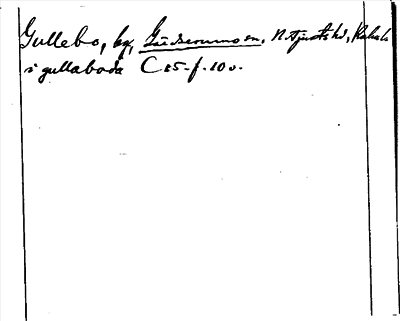 Gullebo, by, Gärdserums sn, N. Tjusts hd, Kalm. l.
i gullaboda C 25 f. 10 v.